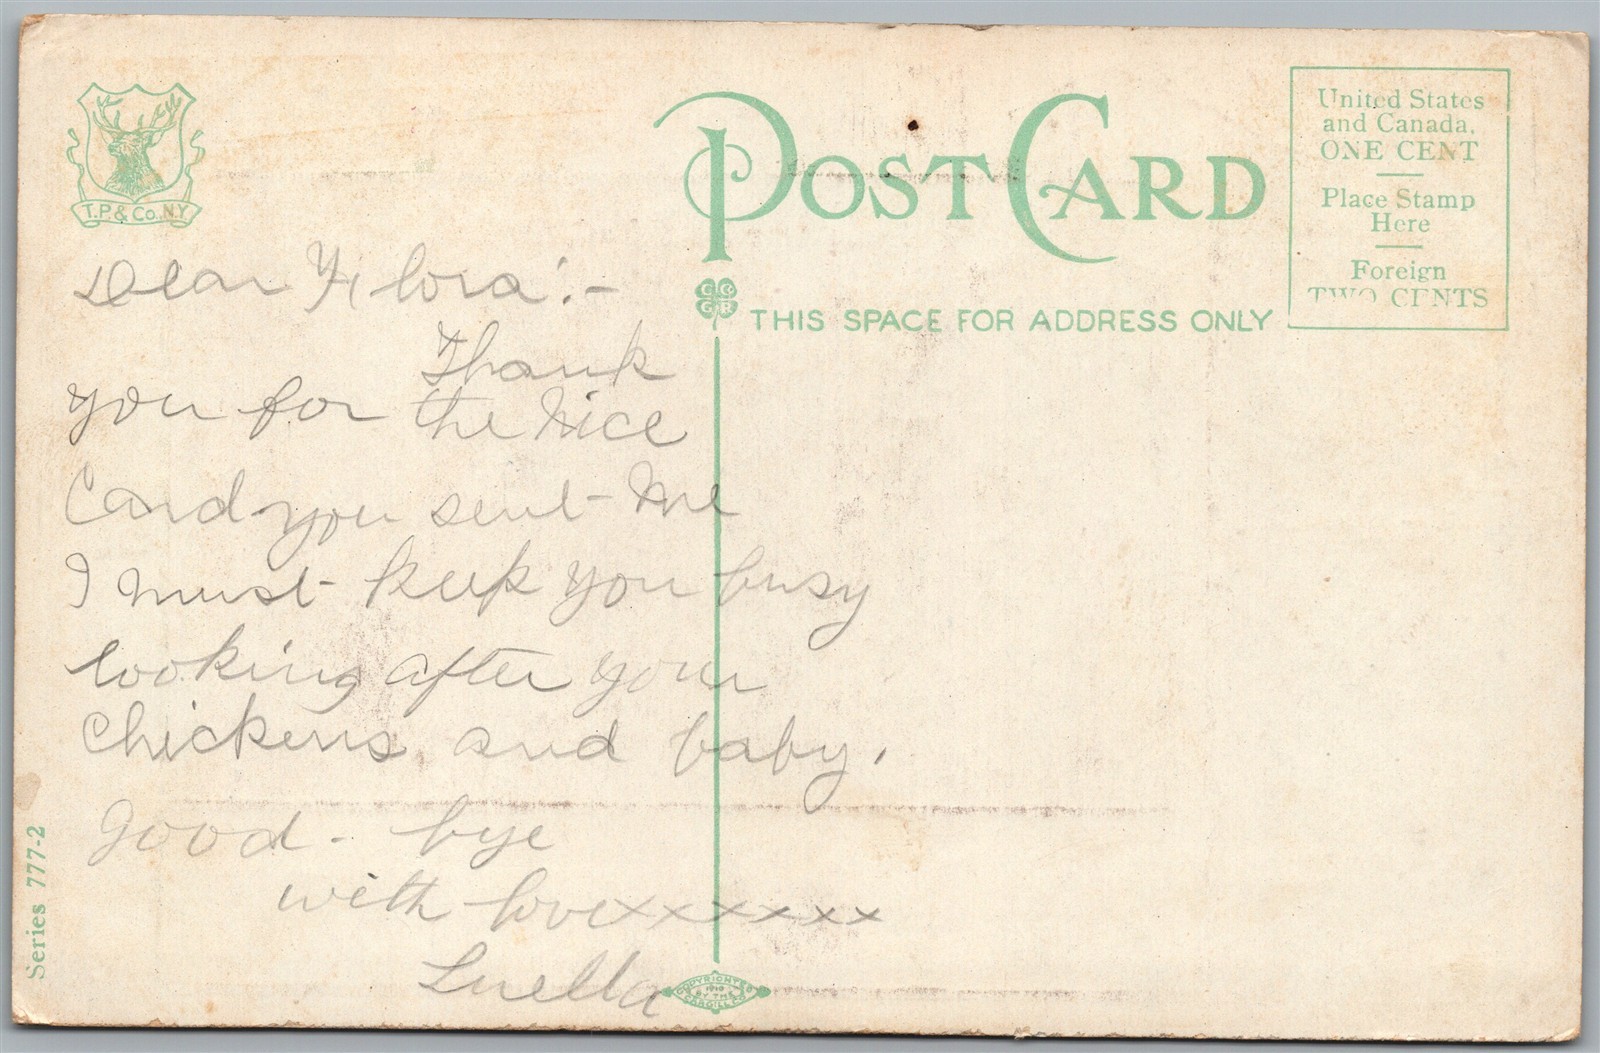 T.P. & Co. N.Y.
POST CARD
United States
and Canada,
ONE CENT
Place Stamp
Here
Foreign
TWO CENTS
THIS SPACE FOR ADDRESS ONLY
Dear Flora:-
Thank
you for the Nice
Card you sent Me
I must keep you busy
looking after your
Chickens and baby.
Good-bye
with love xxxxxxx
Luella
Series 777-2
COPYRIGHTED
1910
BY THE
CARGILL CO